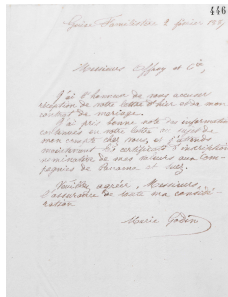 446
Guise Familistère 2 février 1887
Messieurs Offroy et Cie,
J'ai l'honneur de vous accuser
réception de votre lettre d'hier et de mon
contrat de mariage.
J'ai pris bonne note des informations
contenues en votre lettre au sujet de
mon compte chez vous, et j'attends
maintenant les certificats d'inscription
nominative de mes valeurs aux Com-
pagnies de Panama et Suez.
Veuillez agréer, Messieurs,
l'assurance de toute ma considé-
ration
Marie Godin